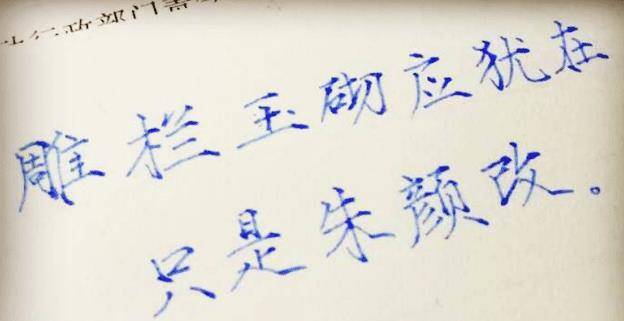 行政部门需
雕栏玉砌应犹在
只是朱颜改。